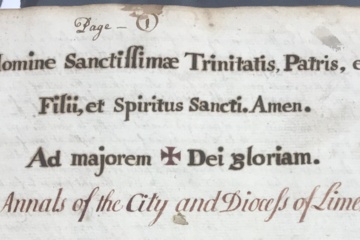 Page - 1
Nomine Sanctissimæ Trinitatis, Patris, e
Filii, et Spiritus Sancti. Amen.
Ad majorem ✠ Dei gloriam.
Annals of the City and Diocess of Lime